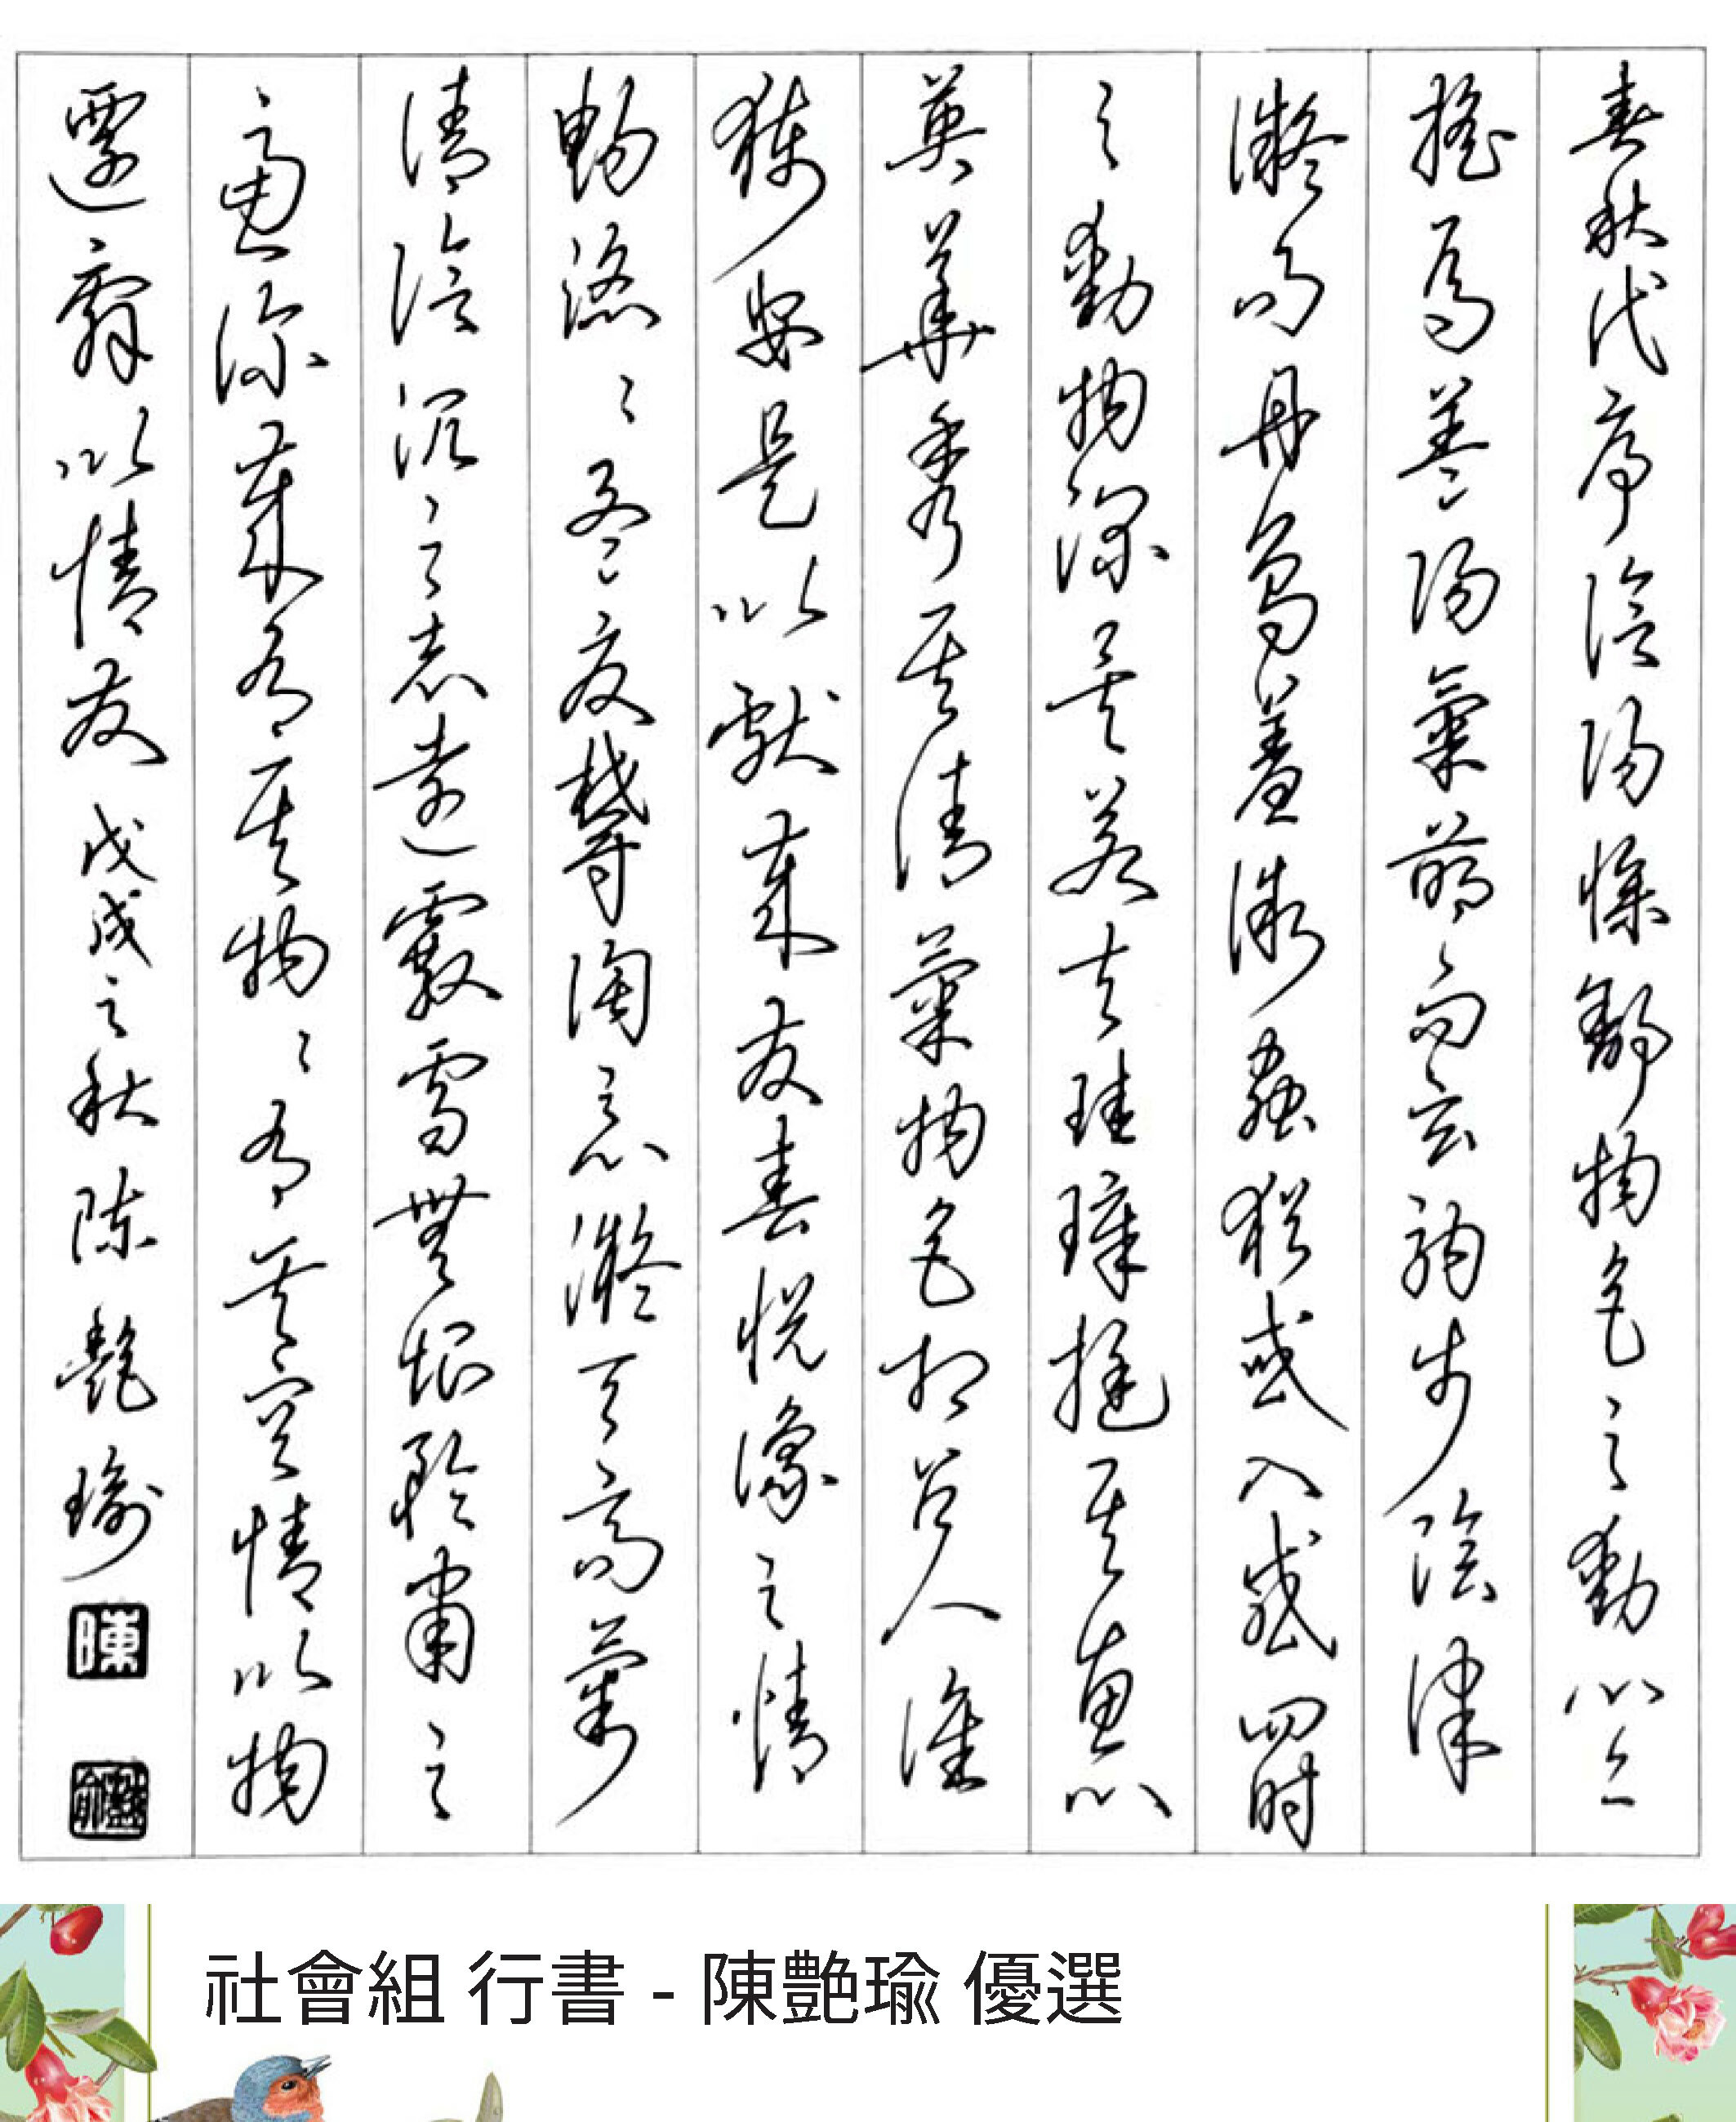 春秋代序陰陽慘舒物色之動心亦
搖焉蓋陽氣萌而玄駒步陰律
凝而丹鳥羞微蟲猶或入感四時
之動物深矣若夫珪璋挺其惠心
英華秀其清氣物色相召人誰
獲安是以獻歲發春悅豫之情
暢滔〻孟夏鬱陶之心凝天高氣
清陰沉之志遠霰雪無垠矜肅之
慮深歲有其物〻有其容情以物
遷辭以情發 戊戌之秋 陳艷瑜
陳
艷瑜
社會組 行書 - 陳艷瑜 優選